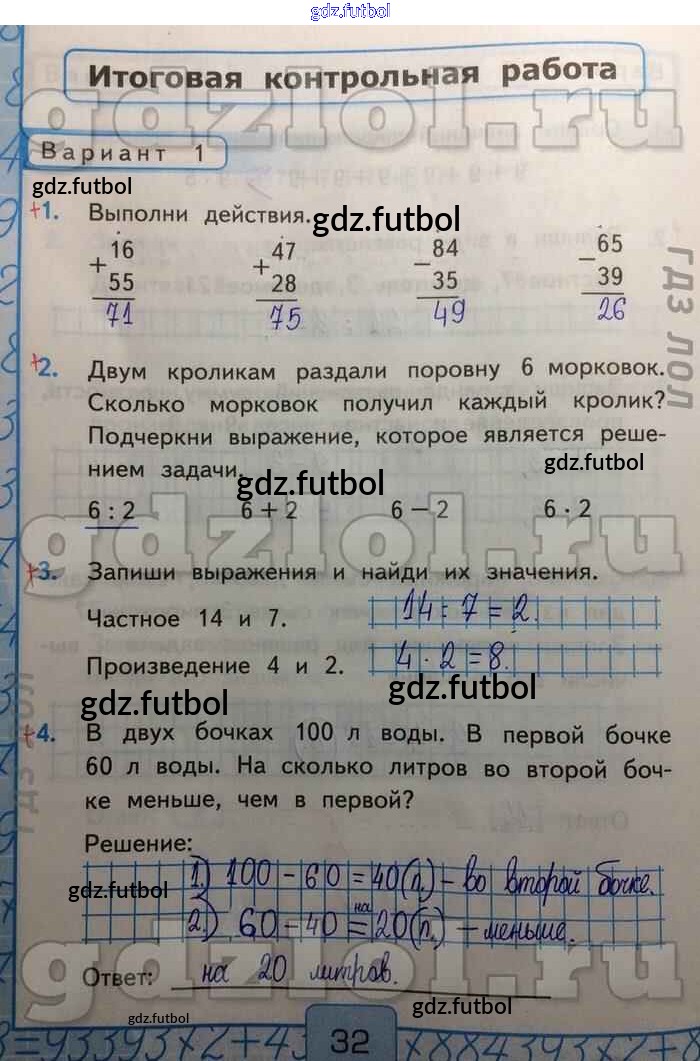 gdz.futbol
Итоговая контрольная работа
gdzlol.ru
Вариант 1
gdz.futbol
+1. Выполни действия.
gdz.futbol
+ 16 + 47 − 84 − 65
55 28 35 39
71 75 49 26
ГДЗ ЛОЛ
+2. Двум кроликам раздали поровну 6 морковок.
Сколько морковок получил каждый кролик?
Подчеркни выражение, которое является реше-
нием задачи.
gdz.futbol
gdz.futbol
6 : 2 6 + 2 6 − 2 6 · 2
gdzlol.ru
+3. Запиши выражения и найди их значения.
Частное 14 и 7. 14 : 7 = 2.
Произведение 4 и 2. 4 · 2 = 8.
gdz.futbol
gdz.futbol
ГДЗ ЛОЛ
+4. В двух бочках 100 л воды. В первой бочке
60 л воды. На сколько литров во второй боч-
ке меньше, чем в первой?
Решение:
1) 100 − 60 = 40 (л.) − во второй бочке.
gdz.futbol
2) 60 − 40 = на 20 (л.) − меньше.
Ответ: на 20 литров.
gdzlol.ru
gdz.futbol
gdz.futbol
32